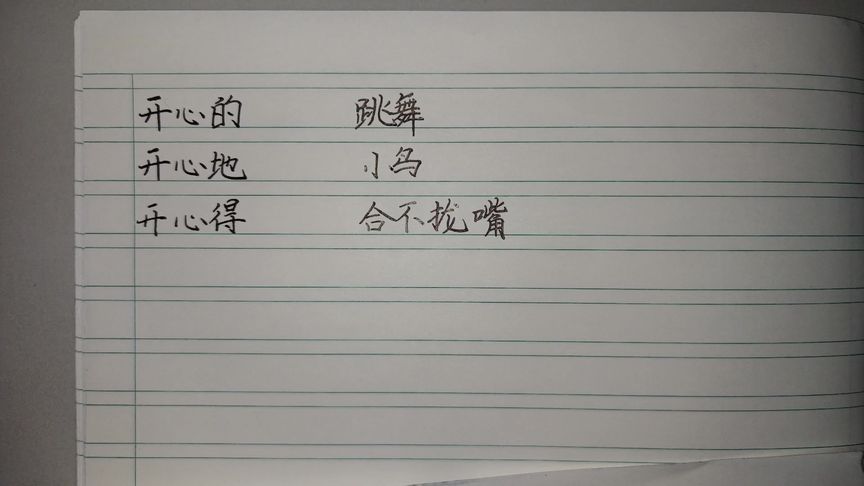 开心的 跳舞
开心地 小鸟
开心得 合不拢嘴